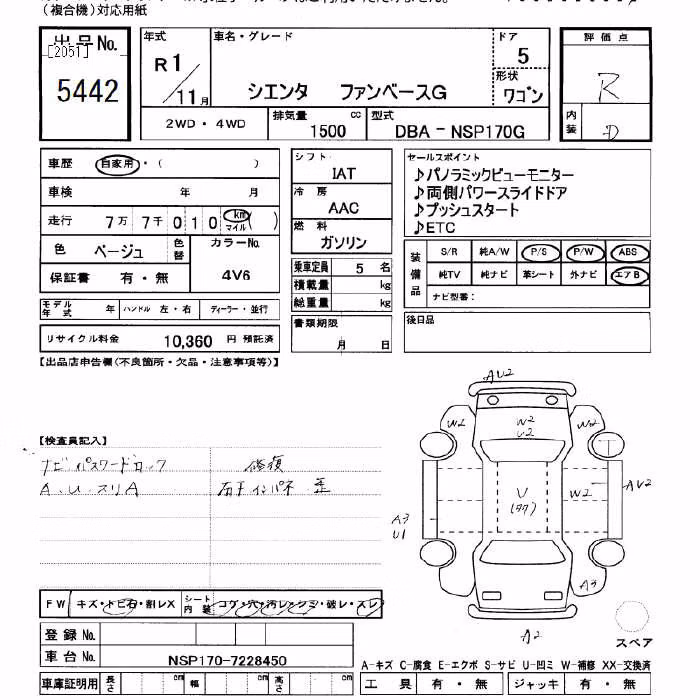 （複合機）対応用紙
出品No.
[2051]
5442
年式
R1/11月
車名・グレード
シエンタ ファンベースG
ドア
5
形状
ワゴン
2WD・4WD
排気量
1500 cc
型式
DBA－NSP170G
評価点
R
内装
D
車歴 自家用・( )
車検 年 月
走行 7万 7千 0 1 0 km マイル ( )
色 ベージュ
色替
カラーNo.
4V6
保証書 有・無
モデル年式 年
ハンドル 左・右
ディーラー・並行
リサイクル料金 10,360 円 預託済
シフト
IAT
冷房
AAC
燃料
ガソリン
乗車定員 5 名
積載量 kg
総重量 kg
書類期限
月 日
セールスポイント
♪パノラミックビューモニター
♪両側パワースライドドア
♪プッシュスタート
♪ETC
装備品
S/R 純A/W P/S P/W ABS
純TV 純ナビ 革シート 外ナビ エアB
ナビ型番：
後日品
【出品店申告欄(不良箇所・欠品・注意事項等)】
【検査員記入】
ナビパスワードロック
A.U.スリA
修復
右リヤインパネ 歪
FW キズ・トビ石・割レX
シート内装 コゲ・穴・汚レ・シミ・破レ・スレ
登録No.
車台No.
NSP170-7228450
車庫証明用 長さ cm 幅 cm 高さ cm
AU2
W2
W2
U2
W2
U
(タワ)
W2
AU2
A3
U1
A3
A2
スペア
A－キズ C－腐食 E－エクボ S－サビ U－凹ミ W－補修 XX－交換済
工具 有・無 ジャッキ 有・無